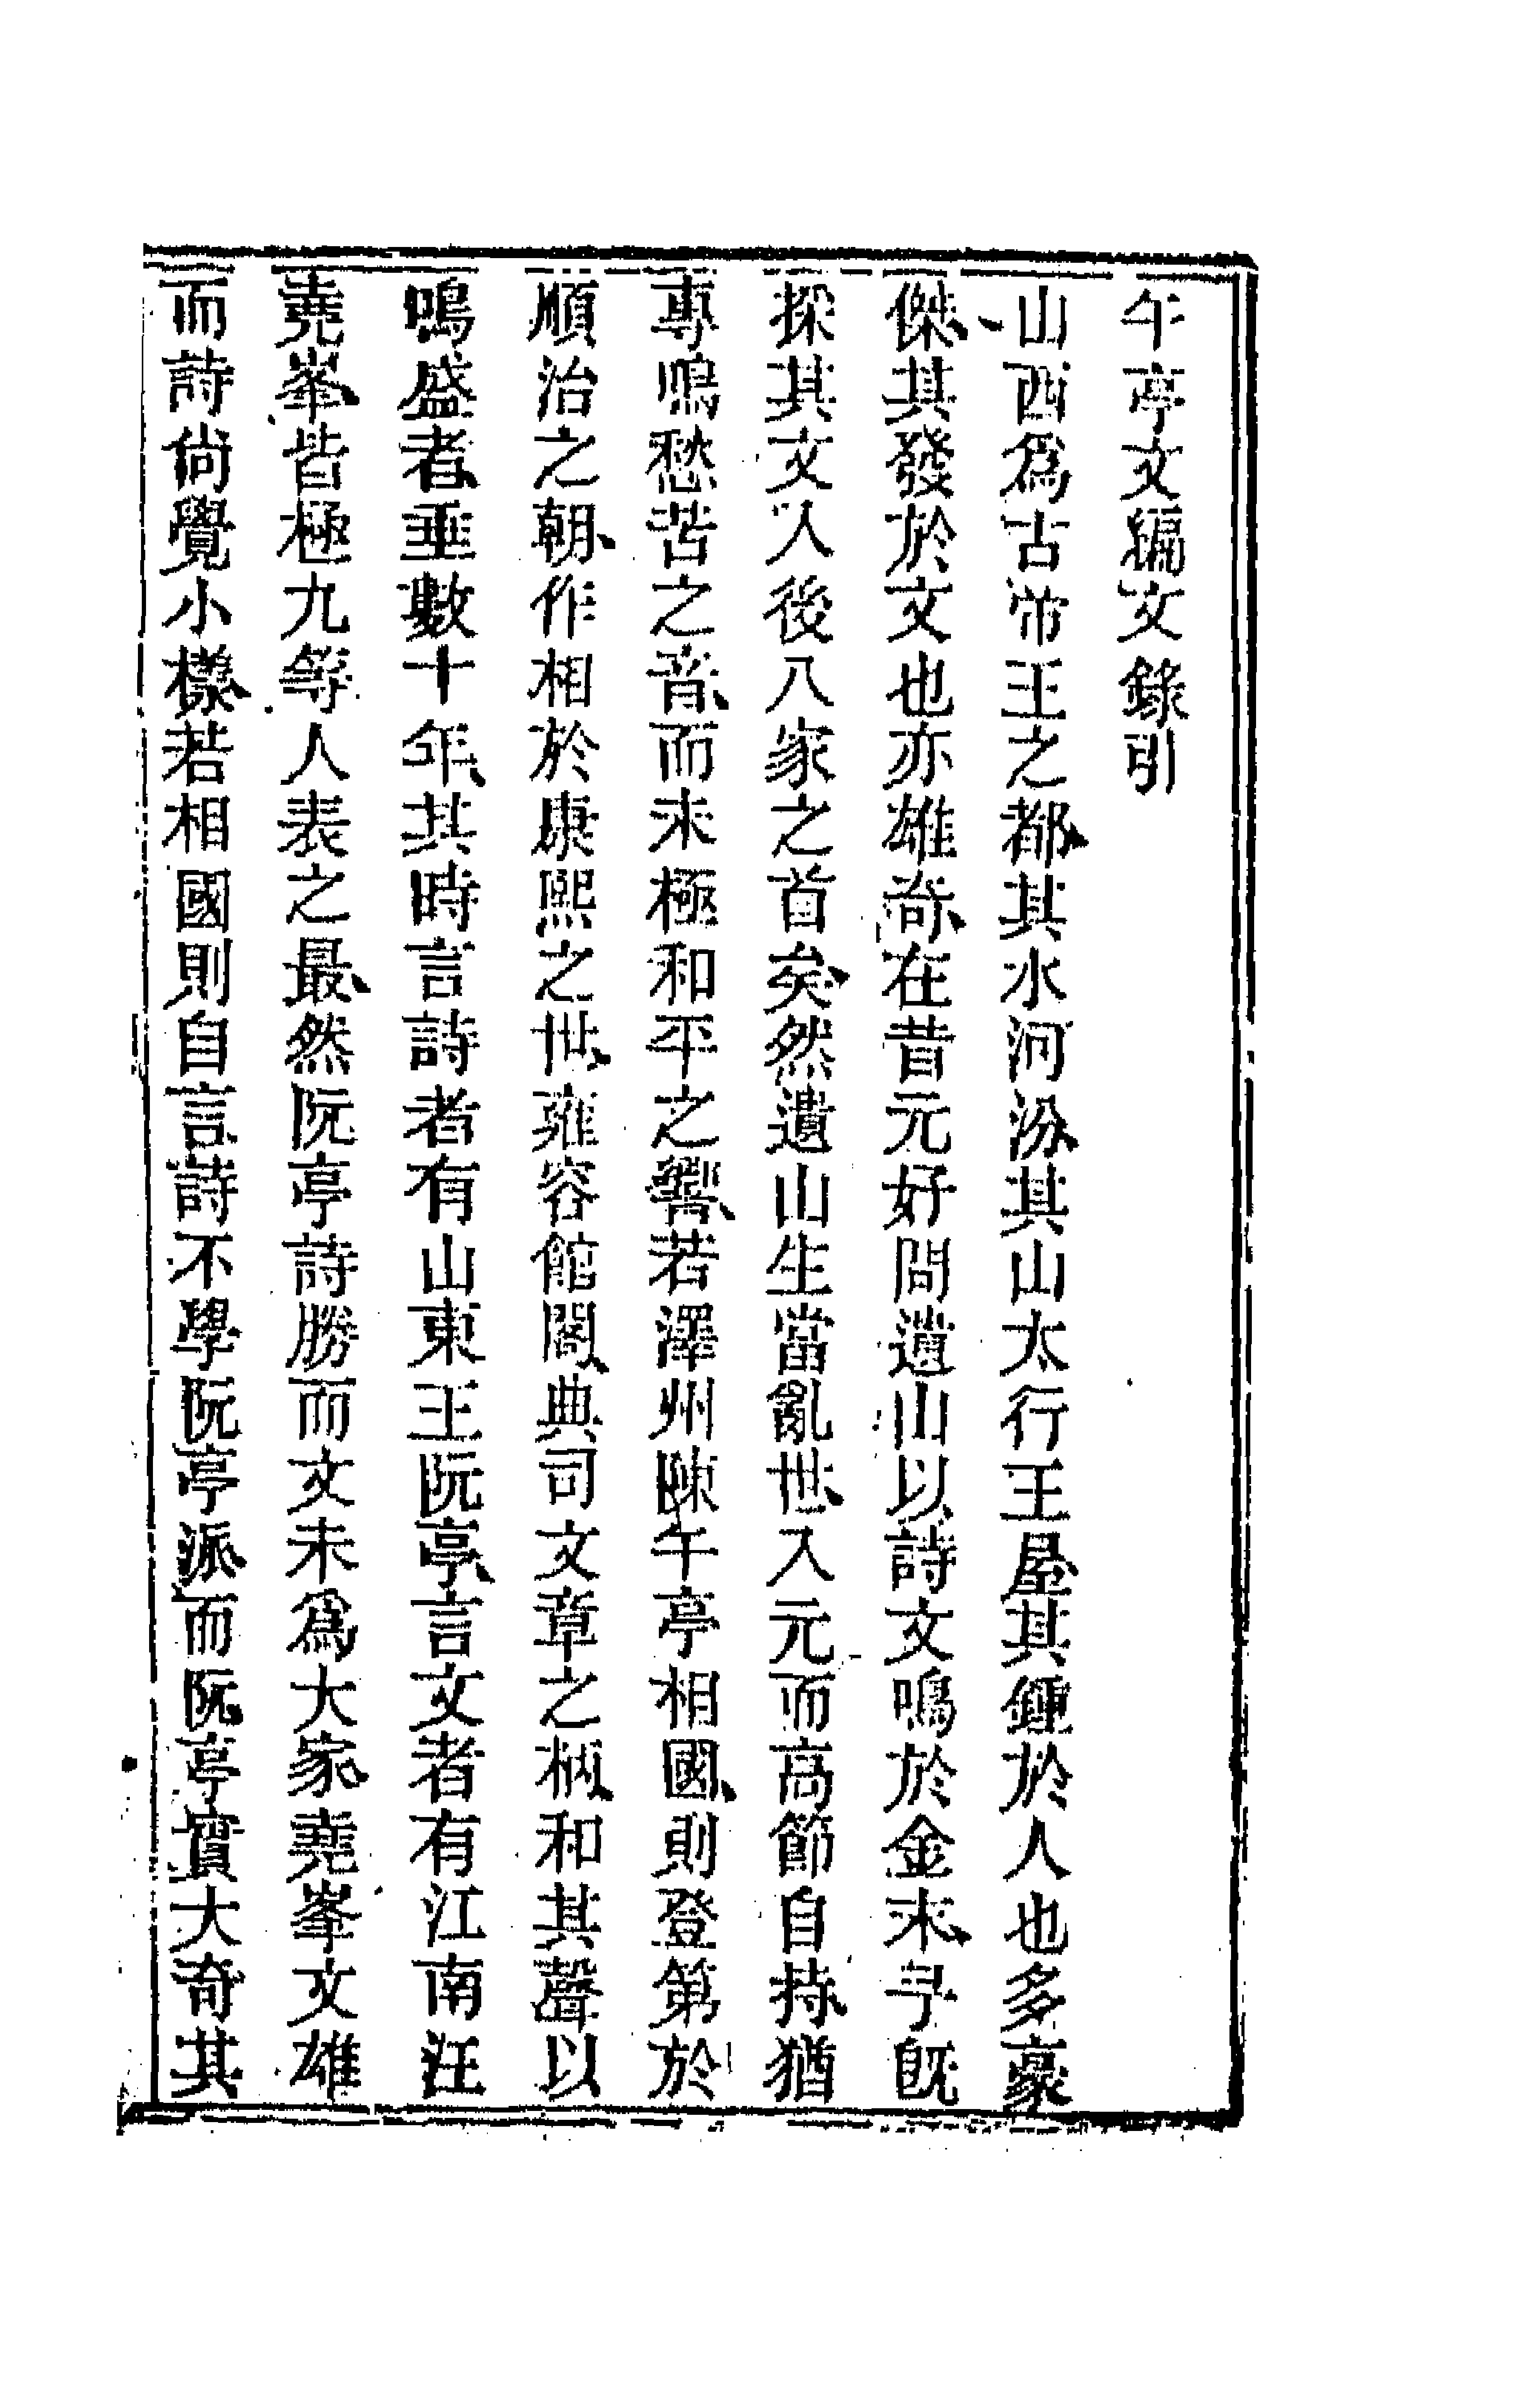 午亭文編文錄引
山西爲古帝王之都、其水河汾、其山太行王屋、其鍾於人也多豪
傑、其發於文也亦雄奇、在昔元好問遺山以詩文鳴於金末、予旣
採其文入後八家之首矣、然遺山生當亂世、入元而高節自持、猶
專鳴愁苦之音、而未極和平之響、若澤州陳午亭相國、則登第於
順治之朝、作相於康熙之世、雍容館閣、典司文章之柄、和其聲以
鳴盛者、垂數十年、其時言詩者有山東王阮亭、言文者有江南汪
堯峯、皆極九等人表之最、然阮亭詩勝而文未爲大家、堯峯文雄
而詩尙覺小樣、若相國則自言詩不學阮亭派、而阮亭實大奇其